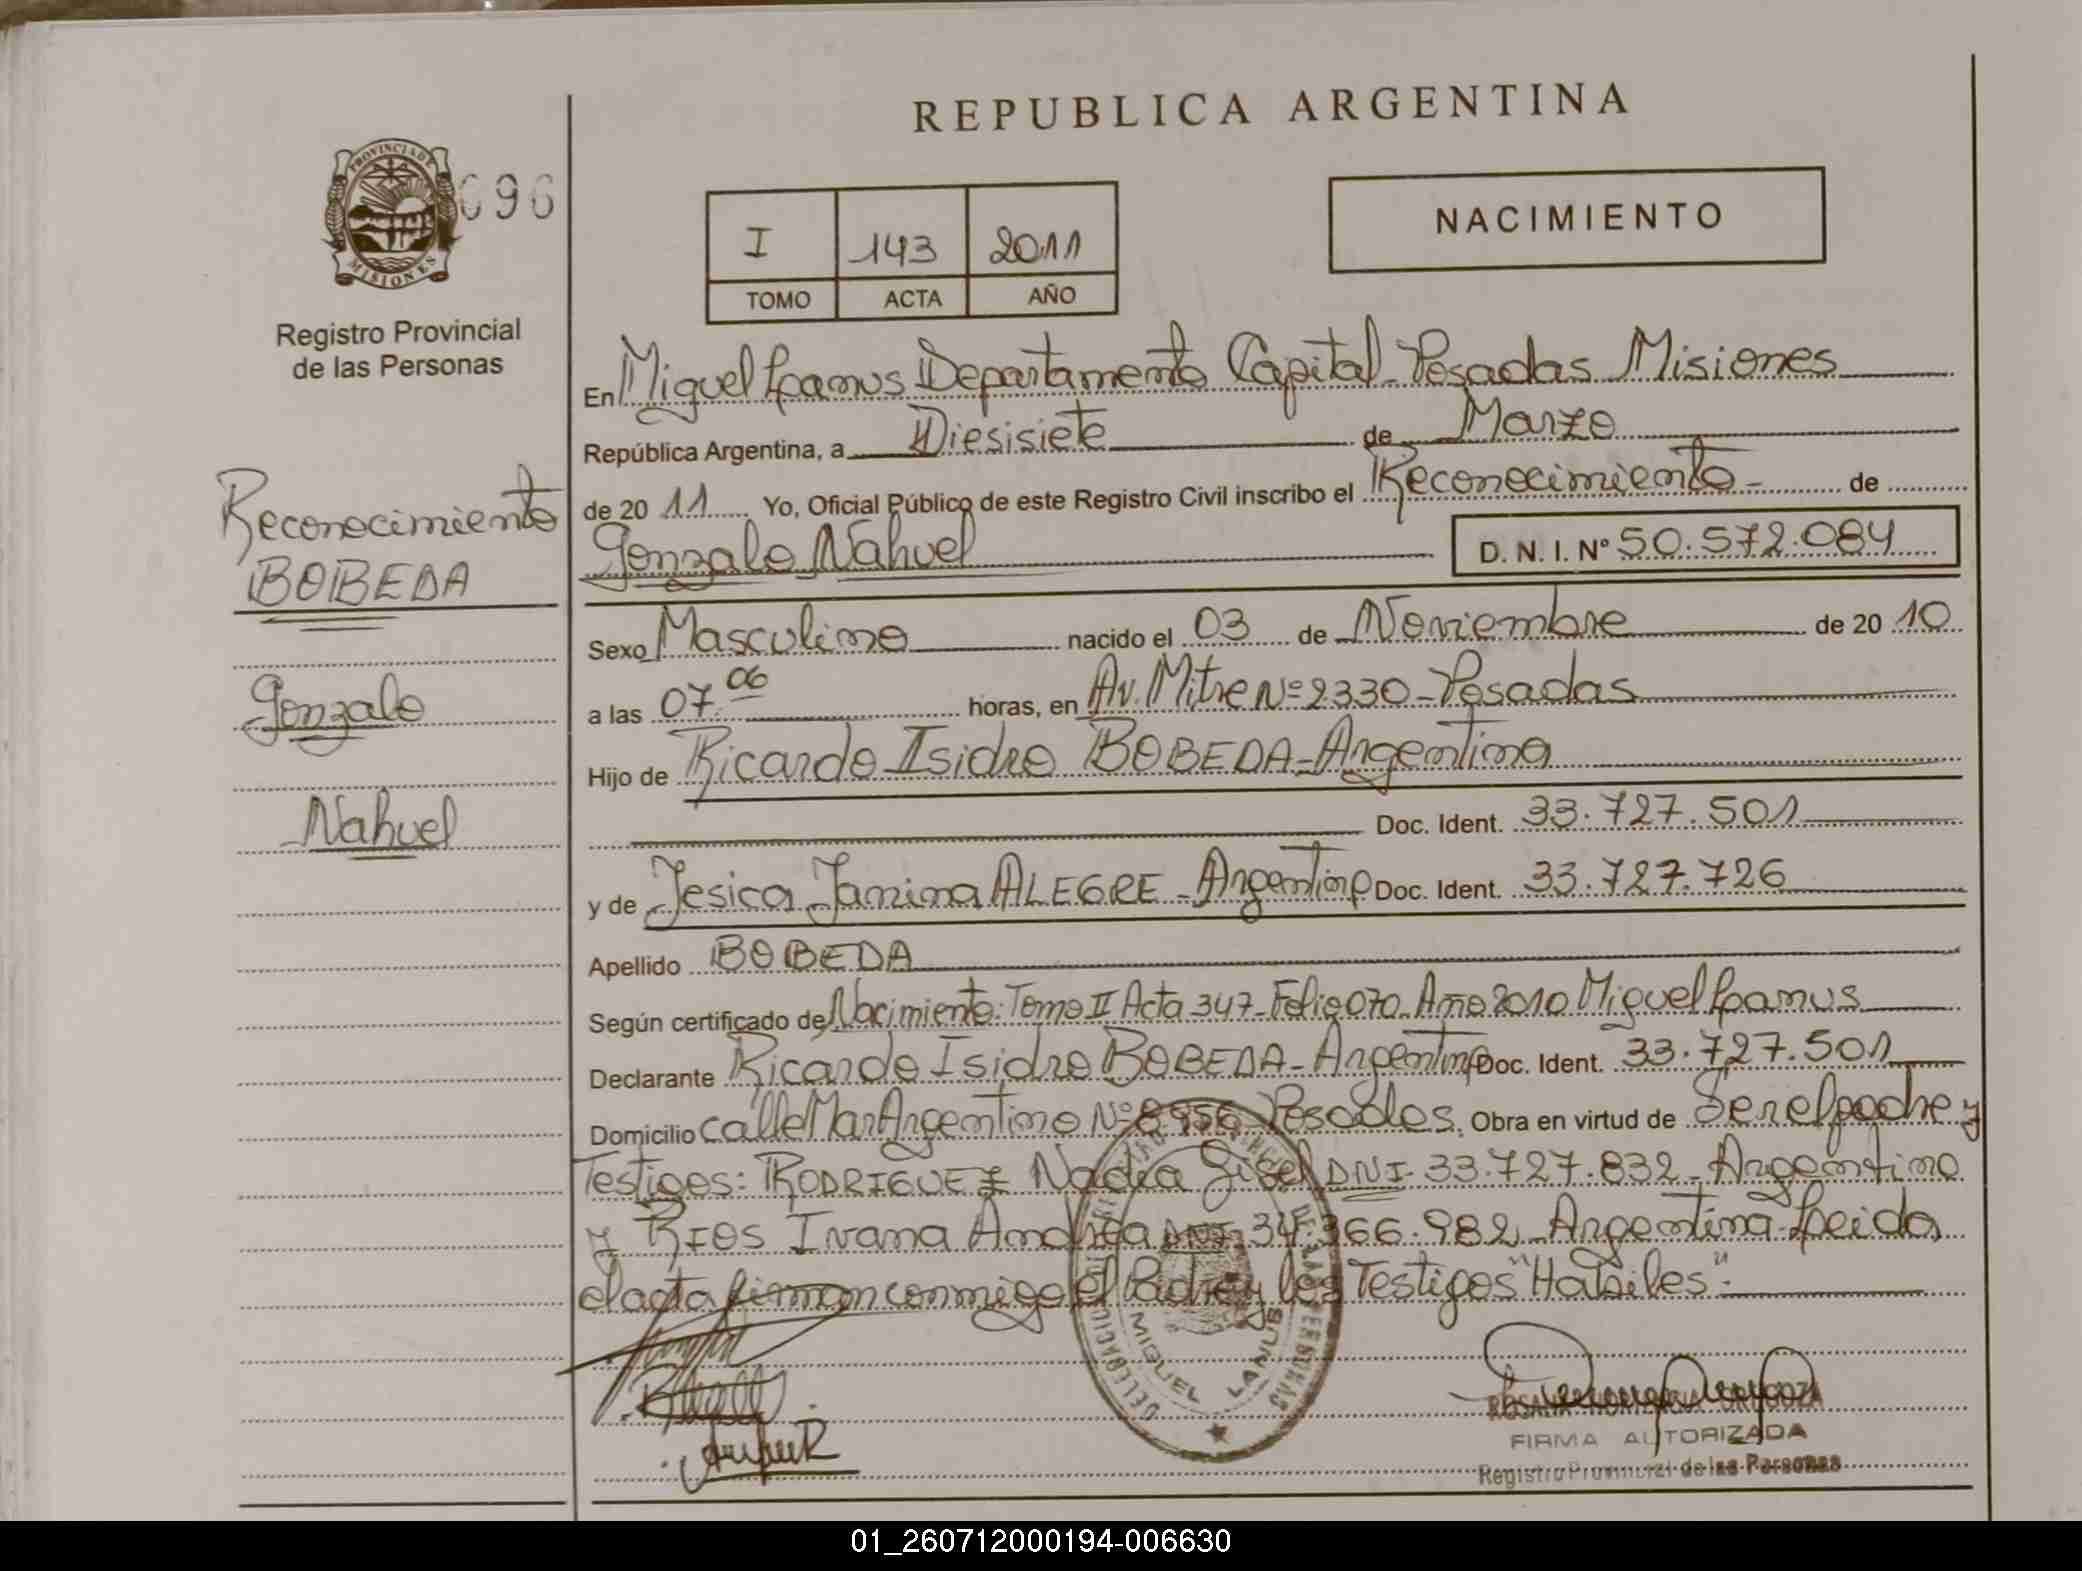 REPUBLICA ARGENTINA
PROVINCIA DE
MISIONES
096
Registro Provincial
de las Personas
I 143 2011
TOMO ACTA AÑO
NACIMIENTO
Reconocimiento
BOBEDA
Gonzalo
Nahuel
En Miguel Lanus Departamento Capital-Posadas Misiones
República Argentina, a Diesisiete de Marzo
de 20 11 Yo, Oficial Público de este Registro Civil inscribo el Reconocimiento - de
Gonzalo Nahuel D. N. I. Nº 50.572.084
Sexo Masculino nacido el 03 de Noviembre de 20 10
a las 07.06 horas, en Av. Mitre Nº 2330-Posadas
Hijo de Ricardo Isidro BOBEDA-Argentino
Doc. Ident. 33.727.501
y de Jesica Janina ALEGRE-Argentina Doc. Ident. 33.727.726
Apellido BOBEDA
Según certificado de Nacimiento: Tomo II Acta 347-Folio 070-Año 2010 Miguel Lanus
Declarante Ricardo Isidro BOBEDA-Argentino Doc. Ident. 33.727.501
Domicilio calle Mar Argentino Nº 8956-Posadas. Obra en virtud de Ser el padre y
Testigos: RODRIGUEZ Nadia Gisel DNI-33.727.832-Argentina
y RIOS Ivana Andrea DNI-34.366.982-Argentina-Leida
el acta firman conmigo el Padre y los Testigos "Habiles".
MIGUEL LANUS
FIRMA AUTORIZADA
Registro Provincial de las Personas
01_260712000194-006630